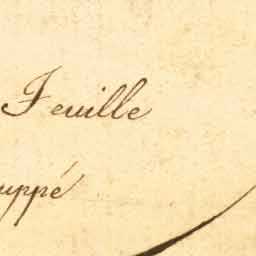 Feuille
uppé